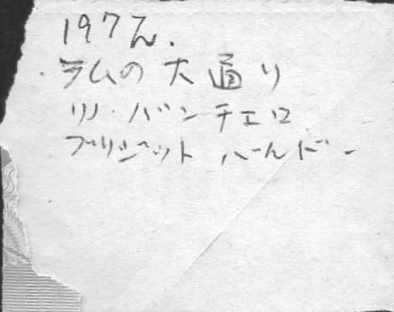 1972.
ラムの大通り
リノ・バンチェロ
ブリジット バルドー